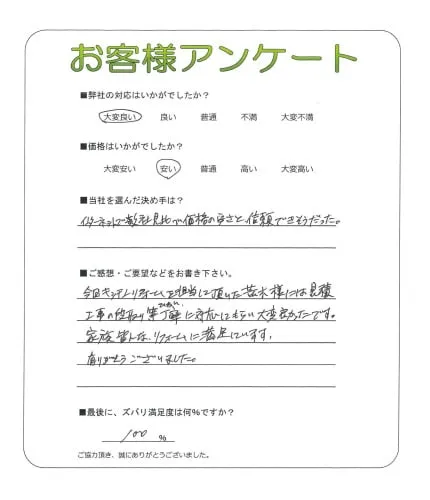 お客様アンケート
■弊社の対応はいかがでしたか？
大変良い 良い 普通 不満 大変不満
■価格はいかがでしたか？
大変安い 安い 普通 高い 大変高い
■当社を選んだ決め手は？
インターネットで数社見比べ価格の安さと、信頼できそうだった。
■ご感想・ご要望などをお書き下さい。
今回キッチンリフォームを担当して頂いた茂木様には見積
工事の段取り等丁寧に対応してもらい大変良かったです。
家族皆んな、リフォームに満足しています。
有りがとうございました。
■最後に、ズバリ満足度は何％ですか？
100 ％
ご協力頂き、誠にありがとうございました。